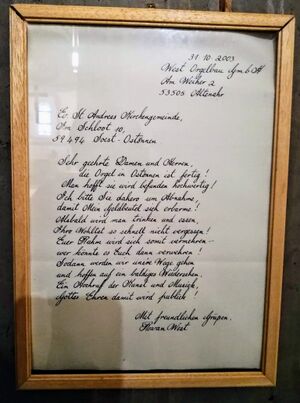 31.10.2003
West Orgelbau GmbH
Am Weiher 2
53505 Altenahr
Ev. St. Andreas Kirchengemeinde,
Am Schloot 10,
59494 Soest-Ostönnen
Sehr geehrte Damen und Herren,
die Orgel in Ostönnen ist fertig!
Man hofft sie wird befunden hochwertig!
Ich bitte Sie dahero um Abnahme
damit Mein Geldbeutel sich erbarme!
Alsbald wird man trinken und essen,
Ihre Wohltat so schnell nicht vergessen!
Euer Ruhm wird sich somit vermehren -
wer könnte es Euch dann verwehren!
Sodann werden wir unsere Wege gehen
und hoffen auf ein baldiges Wiedersehen.
Ein Hochruf der Kunst und Musick,
Gottes Ehren damit wird publick!
Mit freundlichen Grüßen,
Rowan West